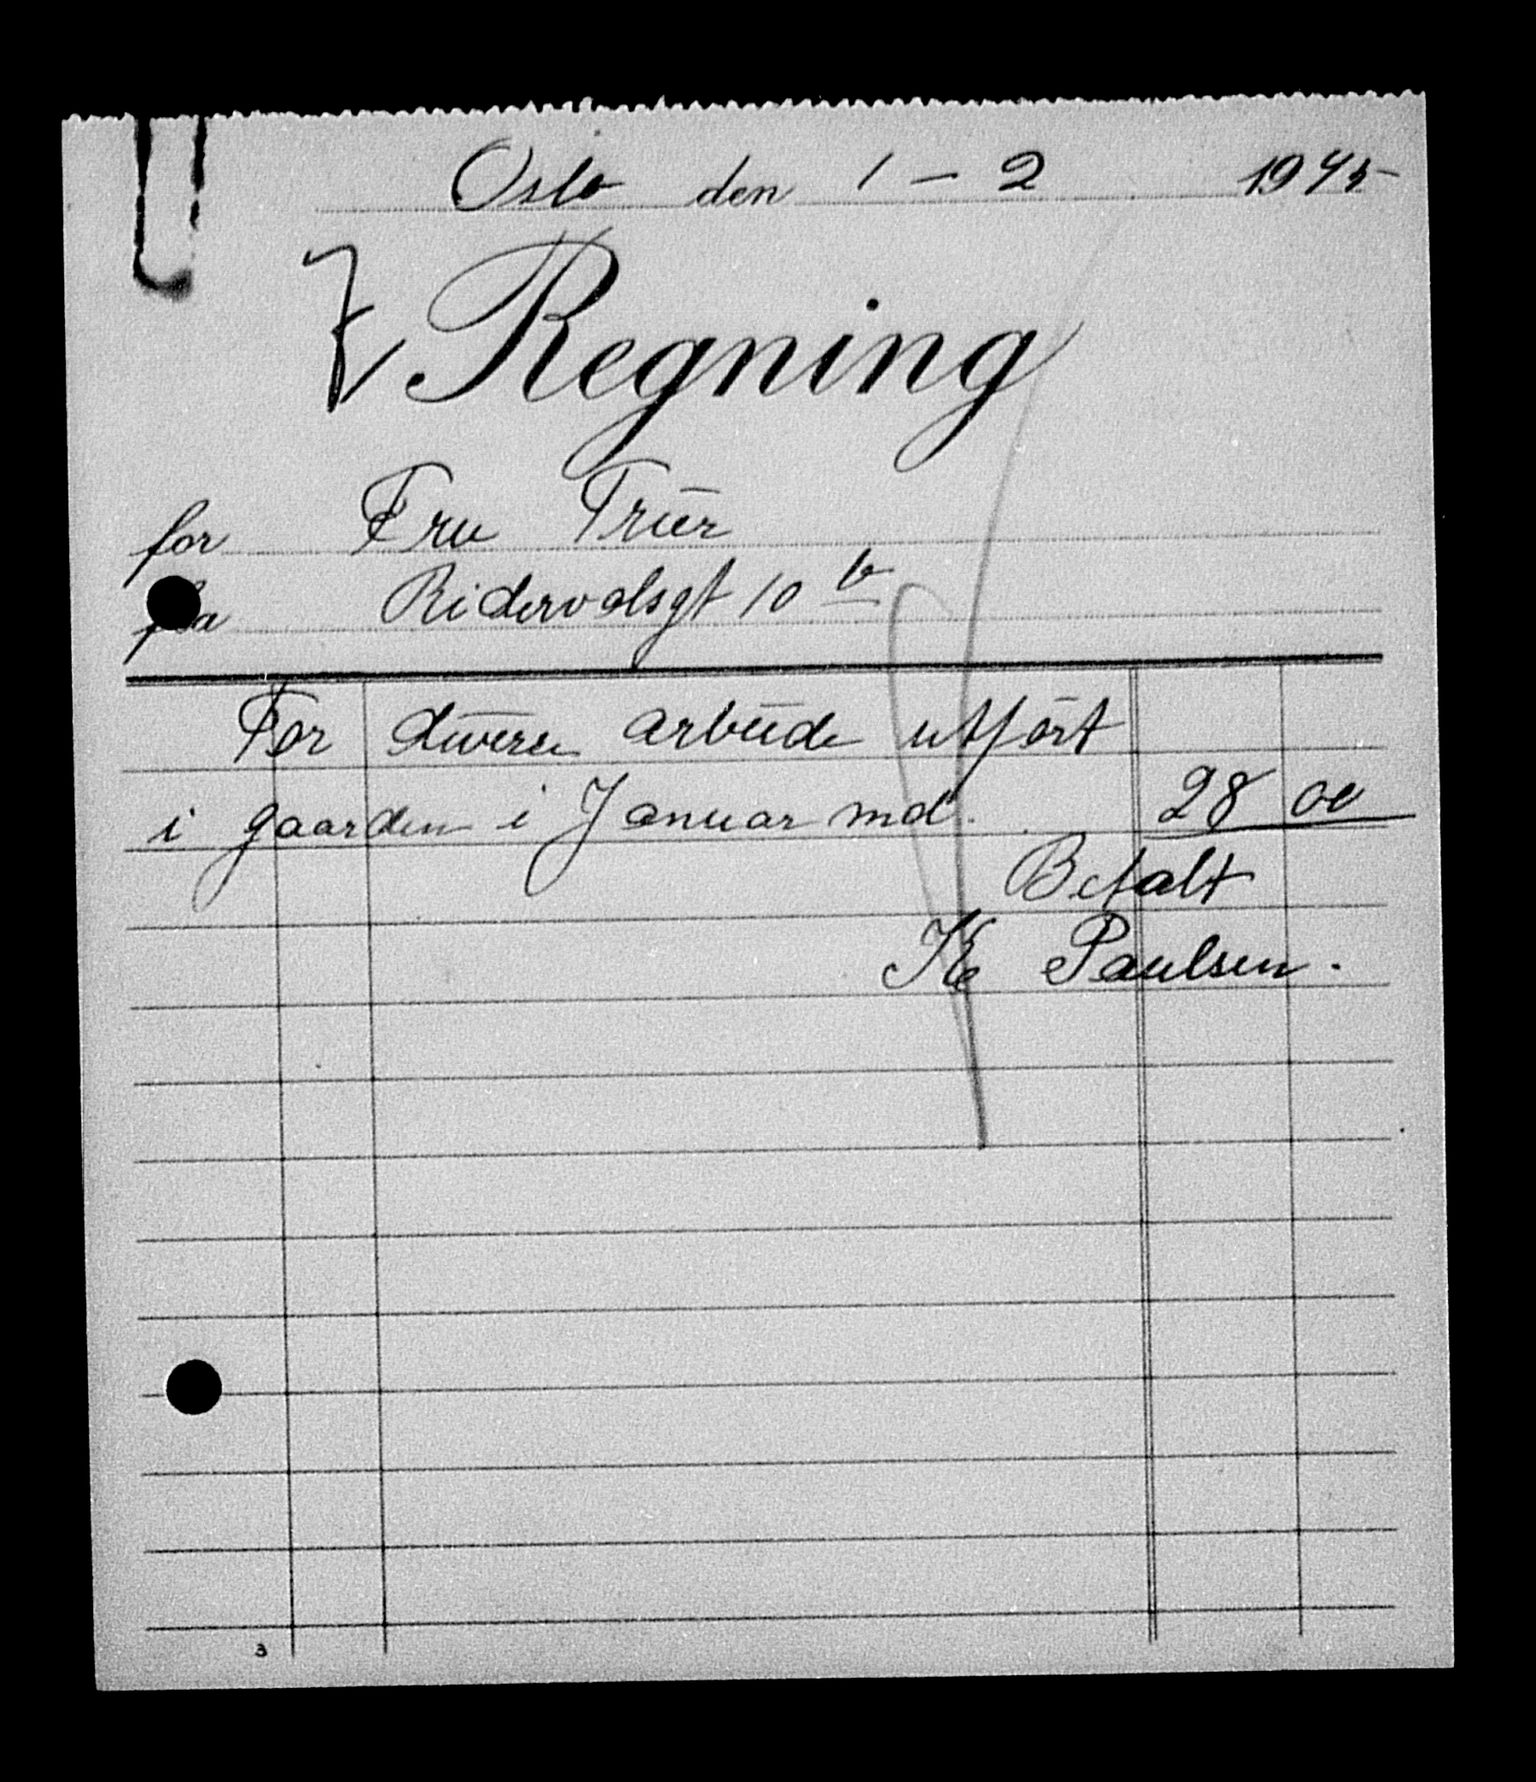 Oslo den 1 - 2 1945
7 Regning
for Fru Trier
fra Ridervolsgt 10 b
For diverse arbeide utfört
i gaarden i Januar md. 28 00
Betalt
K Paulsen.
3